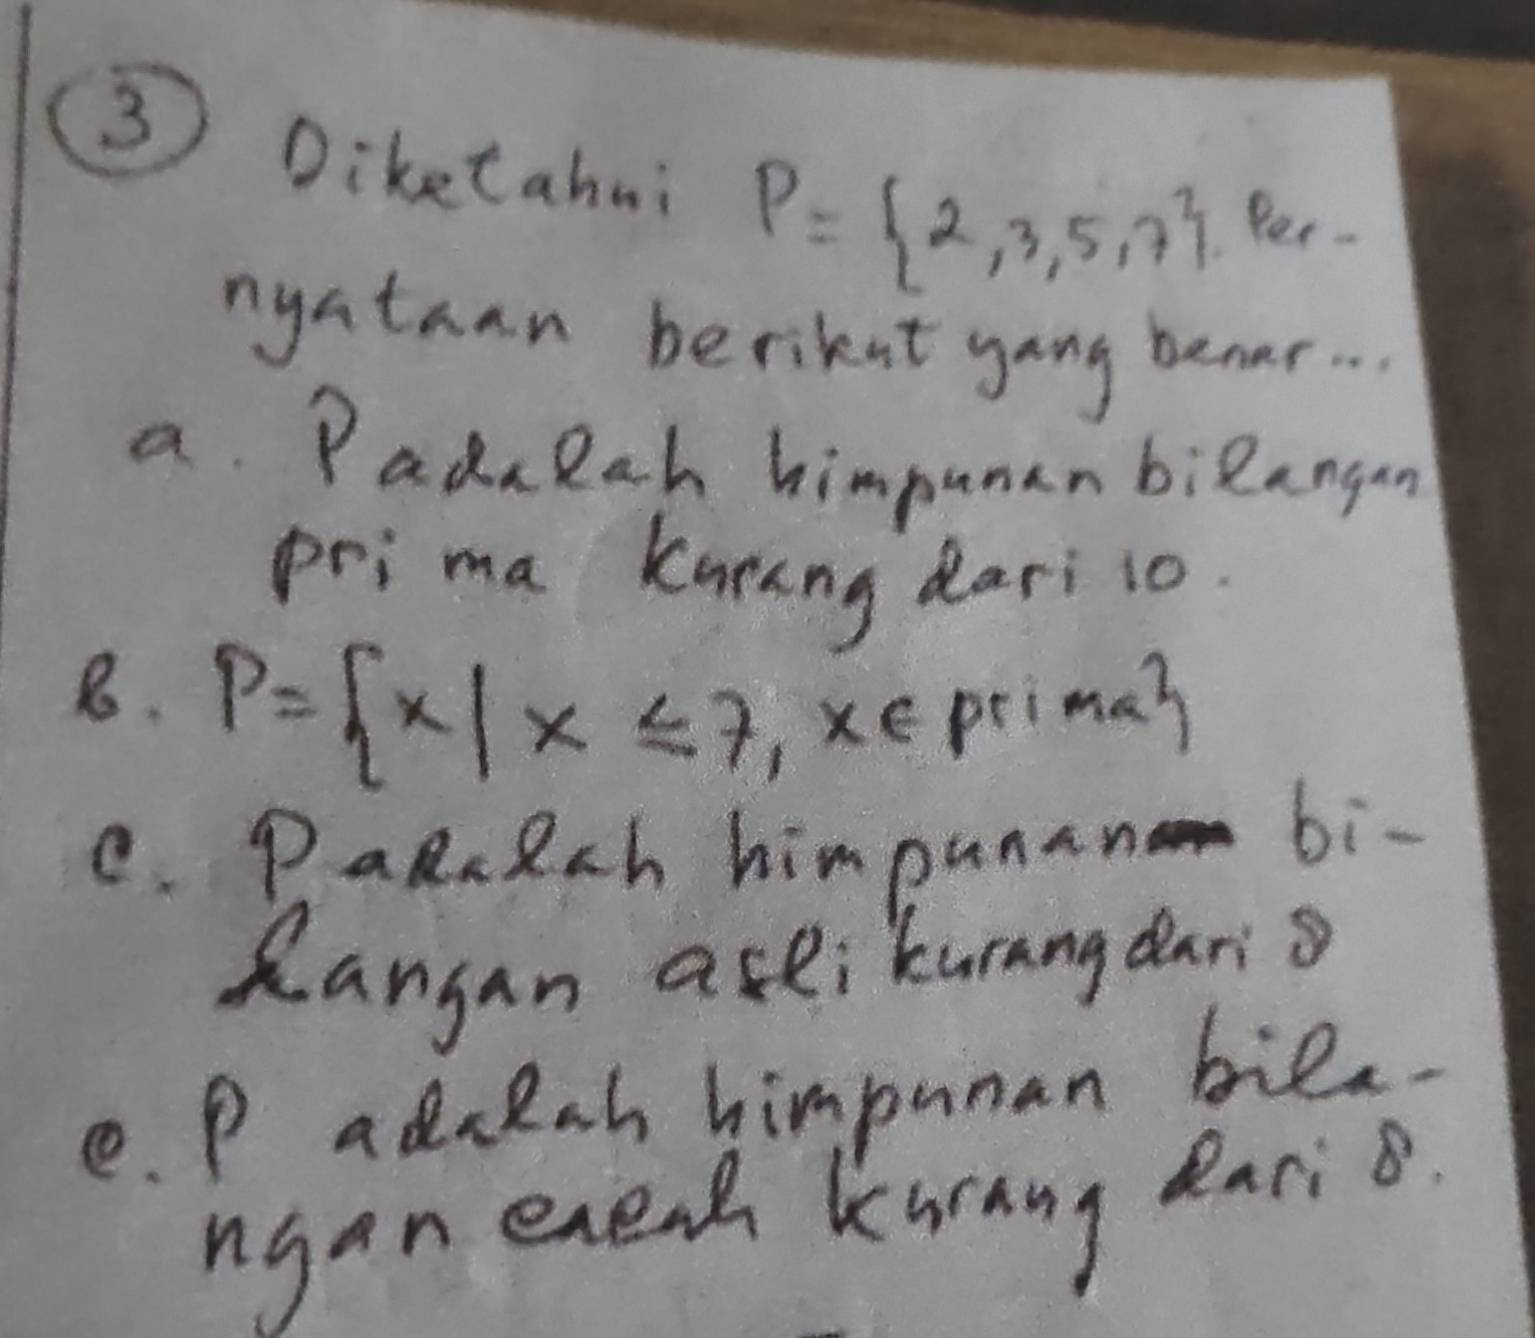 3 Diketahui P = {2,3,5,7}. Per-
nyataan berikut yang benar...
a. P adalah himpunan bilangan
prima kurang dari 10.
B. P = {x | x ≤ 7, x ∈ prima}
c. P adalah himpunan bi-
langan asli kurang dari 8
e. P adalah himpunan bila-
ngan cacah kurang dari 8.